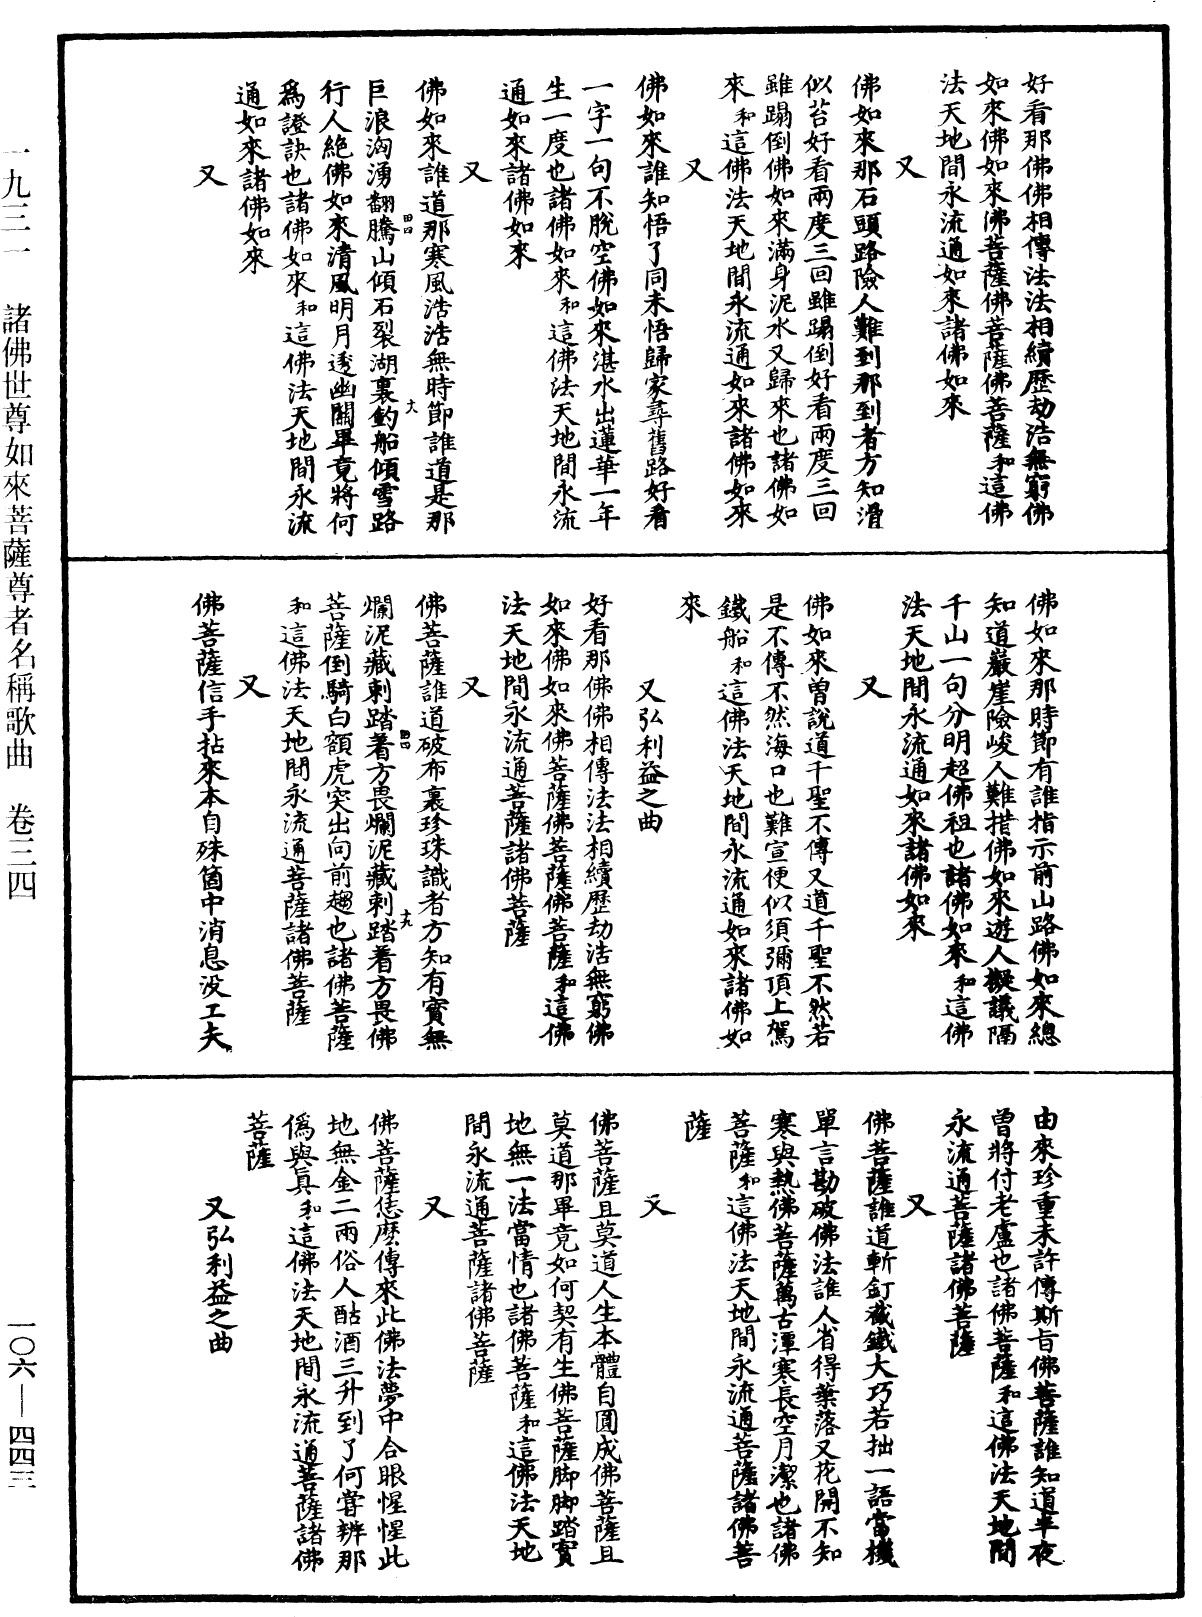 好看那佛佛相傳法法相續歷劫浩無窮佛
如來佛如來佛菩薩佛菩薩佛菩薩和這佛
法天地間永流通如來諸佛如來
又
佛如來那石頭路險人難到那到者方知滑
似苔好看兩度三回雖蹋倒好看兩度三回
雖蹋倒佛如來滿身泥水又歸來也諸佛如
來和這佛法天地間永流通如來諸佛如來
又
佛如來誰知悟了同未悟歸家尋舊路好看
一字一句不脫空佛如來湛水出蓮華一年
生一度也諸佛如來和這佛法天地間永流
通如來諸佛如來
又
佛如來誰道那寒風浩浩無時節誰道是那
巨浪洶湧翻騰山傾石裂湖裏釣船傾雪路
行人絕佛如來清風明月透幽關畢竟將何
爲證訣也諸佛如來和這佛法天地間永流
通如來諸佛如來
又
佛如來那時節有誰指示前山路佛如來總
知道巖崖險峻人難措佛如來遊人擬議隔
千山一句分明超佛祖也諸佛如來和這佛
法天地間永流通如來諸佛如來
又
佛如來曾說道千聖不傳又道千聖不然若
是不傳不然海口也難宣便似須彌頂上駕
鐵船和這佛法天地間永流通如來諸佛如
來
又弘利益之曲
好看那佛佛相傳法法相續歷劫浩無窮佛
如來佛如來佛菩薩佛菩薩佛菩薩和這佛
法天地間永流通菩薩諸佛菩薩
又
佛菩薩誰道破布裏珍珠識者方知有實無
爛泥藏刺踏著方畏爛泥藏刺踏着方畏佛
菩薩倒騎白額虎突出向前趨也諸佛菩薩
和這佛法天地間永流通菩薩諸佛菩薩
又
佛菩薩信手拈來本自殊箇中消息没工夫
由來珍重未許傳斯旨佛菩薩誰知道半夜
曾將付老盧也諸佛菩薩和這佛法天地間
永流通菩薩諸佛菩薩
又
佛菩薩誰道斬釘截鐵大巧若拙一語當機
單言勘破佛法誰人省得葉落又花開不知
寒與熱佛菩薩萬古潭寒長空月潔也諸佛
菩薩和這佛法天地間永流通菩薩諸佛菩
薩
又
佛菩薩且莫道人生本體自圓成佛菩薩且
莫道那畢竟如何契有生佛菩薩脚脚踏實
地無一法當情也諸佛菩薩和這佛法天地
間永流通菩薩諸佛菩薩
又
佛菩薩恁麽傳來此佛法夢中合眼惺惺此
地無金二兩俗人酤酒三升到了何嘗辨那
僞與真和這佛法天地間永流通菩薩諸佛
菩薩
又弘利益之曲
一九三一 諸佛世尊如來菩薩尊者名稱歌曲 卷三四
一〇六—四四三